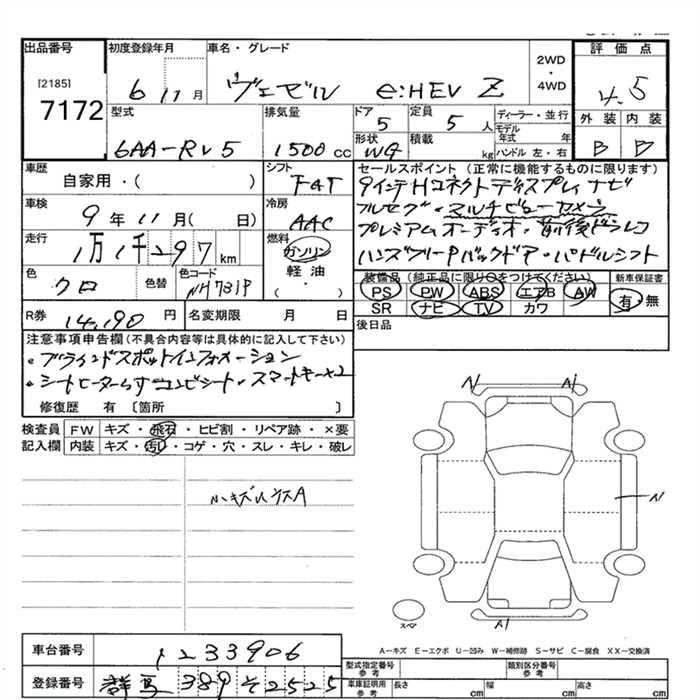 出品番号 初度登録年月 車名・グレード 2WD・4WD 評価点
[2185]
7172 6 11月 ヴェゼル e:HEV Z 4.5
型式 排気量 ドア 定員 ディーラー・並行 外装 内装
6AA-RV5 1500cc 5 5人 モデル年式 年 B B
形状 積載
WG kg ハンドル 左・右
車歴 シフト セールスポイント (正常に機能するものに限ります)
自家用・( ) FAT 9インチHコネクトディスプレイナビ
車検 冷房 フルセグ・マルチビューカメラ
9年11月( 日) AAC プレミアムオーディオ・前後ドラレコ
走行 燃料 ハンズフリーPバックドア・パドルシフト
1万1千297km ガソリン
軽油・( )
色 色替 色コード 装備品(純正品に限り○をつけてください) 新車保証書
クロ NH731P PS PW ABS エアB AW 有・無
SR ナビ TV カワ
R券 14,190円 名変期限 月 日 後日品
注意事項申告欄(不具合内容等は具体的に記入して下さい)
・ブラインドスポットインフォメーション
・シートヒーター コンビシート・スマートキー×2
修復歴 有 〔箇所 〕
検査員 FW キズ・飛石・ヒビ割・リペア跡・×要
記入欄 内装 キズ・汚れ・コゲ・穴・スレ・キレ・破レ
小キズ小ウスA
A1 A1
W
スペア
A1
A-キズ E-エクボ U-凹み W-補修跡 S-サビ C-腐食 XX-交換済
車台番号 1233906 型式指定番号 参考 類別区分番号 参考
登録番号 群馬 389 そ 2525 車庫証明用 参考 長さ cm 幅 cm 高さ cm